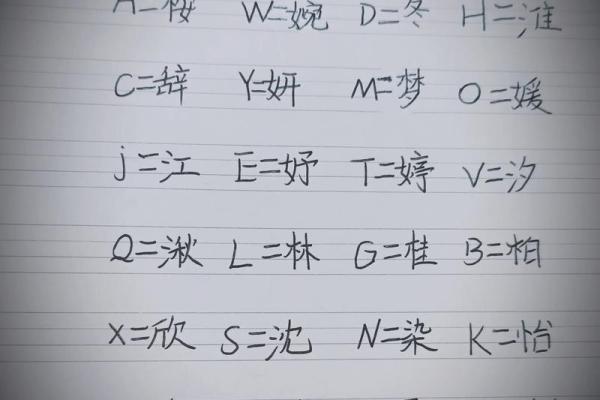 W=婉 D=冬 H=淮
C=辞 Y=妍 M=梦 O=媛
j=江 E=妤 T=婷 V=汐
Q=湫 L=林 G=桂 B=柏
X=欣 S=沈 N=染 K=怡